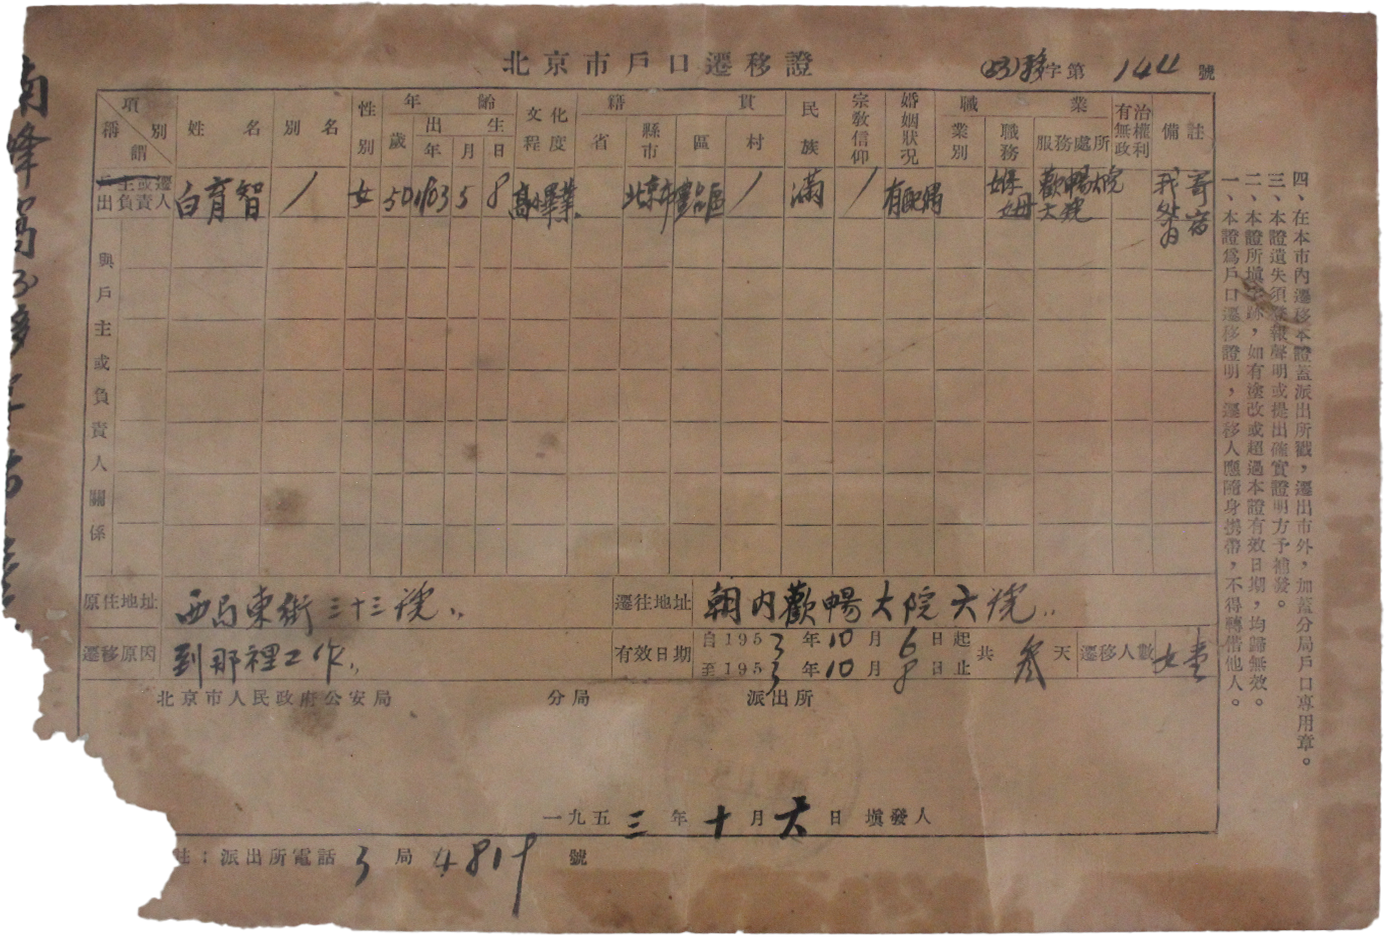 北京市戶口遷移證
(53)移字第144號
項別 稱謂
姓名
別名
性別
年齡
歲
出生
年 月 日
文化程度
籍貫
省 縣市 區 村
民族
宗教信仰
婚姻狀況
職業
業別 職務 服務處所
有無政治權利
備註
戶主或遷出負責人 白育智 / 女 50 1903 5 8 高小畢業 北京市 區 / 滿 / 有配偶 保母 歡暢大院六號 寄宿
與戶主或負責人關係
原住地址 西局東街三十三號
遷往地址 朝內歡暢大院六號
遷移原因 到那裡工作
有效日期 自1953年10月6日起
至1953年10月8日止
共叁天
遷移人數 女壹
北京市人民政府公安局 分局 派出所
一九五三年十月六日 填發人
註：派出所電話 5局4819號
一、本證為戶口遷移證明，遷移人應隨身携帶，不得轉借他人。
二、本證所填字跡，如有塗改或超過本證有效日期，均歸無效。
三、本證遺失須登報聲明或提出確實證明方予補發。
四、在本市內遷移本證蓋派出所戳，遷出市外，加蓋分局戶口專用章。